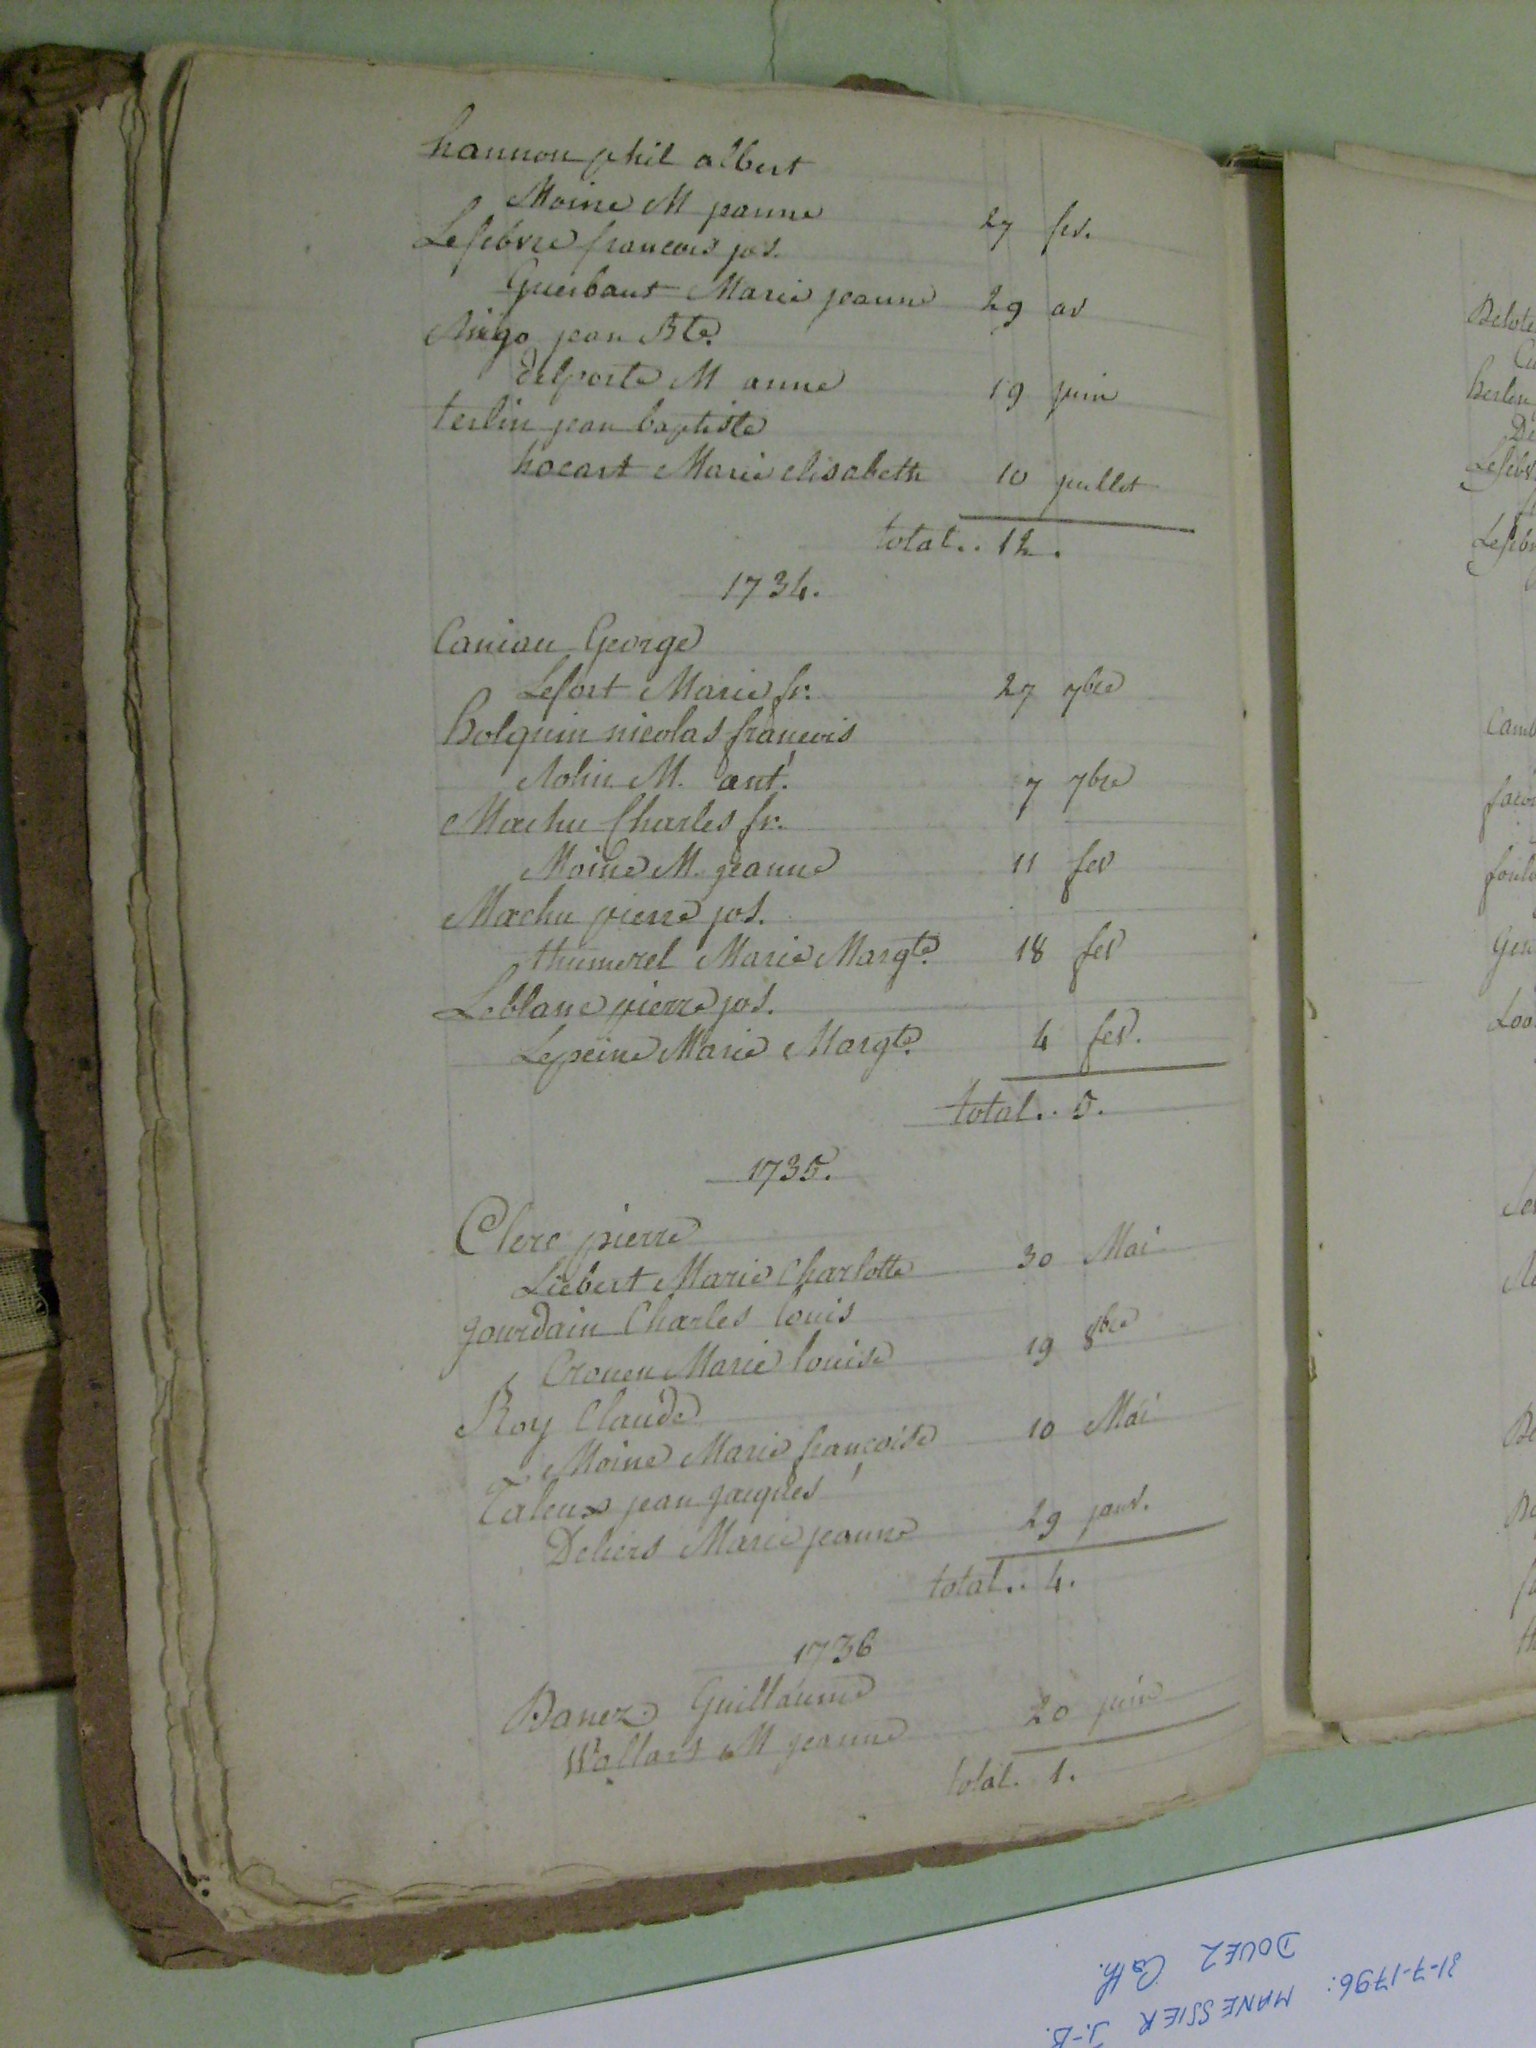 hannon phil albert
Moine M jeanne 27 fev.
Lefebvre francois jos.
Guerbaut Marie jeanne 29 av
Ringo jean Bte.
Delporte M anne 19 juin
terlin jean baptiste
hocart Marie elisabeth 10 juillet
total.. 12.
1734.
Caniau George
Lefort Marie fr. 27 7bre
holquin nicolas francois
Rohin M. ant. 7 7bre
Machu Charles fr.
Moine M. jeanne 11 fev
Machu pierre jos.
thumerel Marie Margte. 18 fev
Leblanc pierre jos.
Lepeine Marie Margte. 4 fev.
total.. 5.
1735.
Clerc pierre
Liebert Marie Charlotte 30 Mai
jourdain Charles louis
Crouen Marie louise 19 8bre
Roy Claude
Moine Marie francoise 10 Mai
Taleux jean jacques
Deliers Marie jeanne 29 janv.
total.. 4.
1736
Banez Guillaume
Wallart M jeanne 20 juin
total. 1.
Lefeb
Lefeb
31-7-1796: MANESSIER J.-B.
DOUEZ Cath.